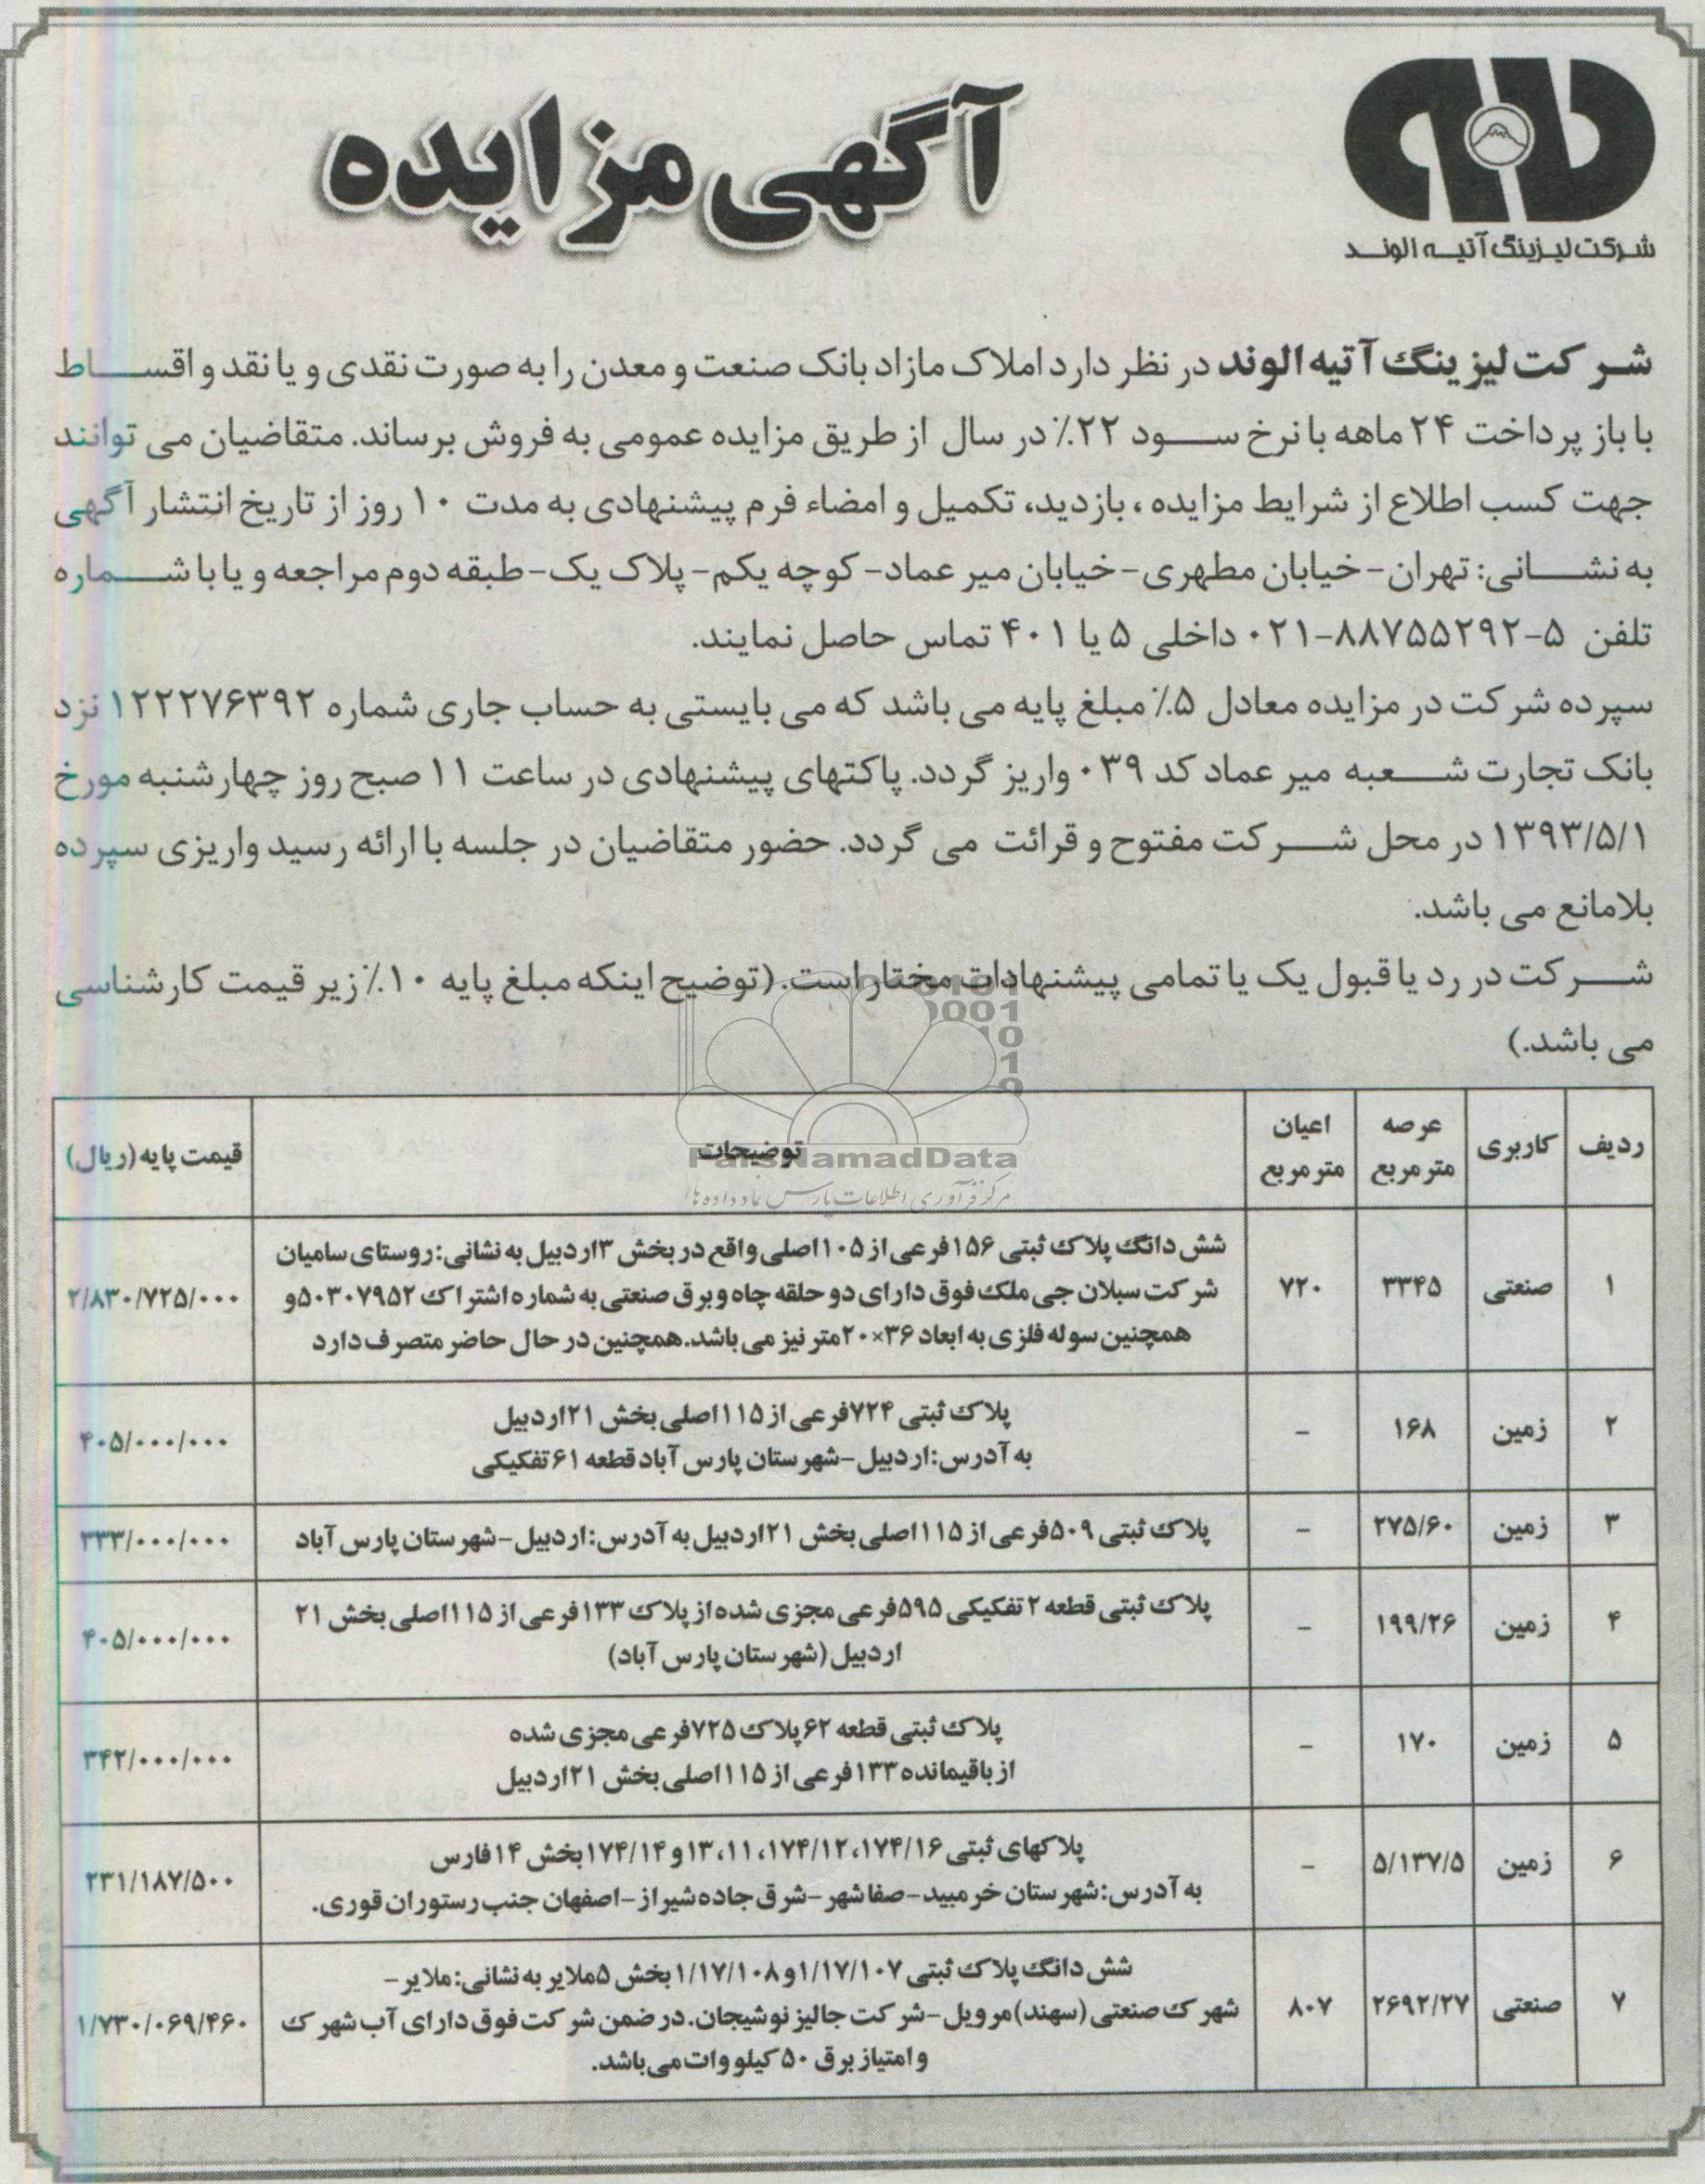 شرکت لیزینگ آتیه الوند
آگهی مزایده
شرکت لیزینگ آتیه الوند در نظر دارد املاک مازاد بانک صنعت و معدن را به صورت نقدی و یا نقد و اقساط
با باز پرداخت ۲۴ ماهه با نرخ سود ۲۲٪ در سال از طریق مزایده عمومی به فروش برساند. متقاضیان می توانند
جهت کسب اطلاع از شرایط مزایده ، بازدید، تکمیل و امضاء فرم پیشنهادی به مدت ۱۰ روز از تاریخ انتشار آگهی
به نشانی: تهران-خیابان مطهری-خیابان میر عماد-کوچه یکم-پلاک یک-طبقه دوم مراجعه و یا با شماره
تلفن ۵-۸۸۷۵۵۲۹۲-۰۲۱ داخلی ۵ یا ۴۰۱ تماس حاصل نمایند.
سپرده شرکت در مزایده معادل ۵٪ مبلغ پایه می باشد که می بایستی به حساب جاری شماره ۱۲۲۲۷۶۳۹۲ نزد
بانک تجارت شعبه میر عماد کد ۰۳۹ واریز گردد. پاکتهای پیشنهادی در ساعت ۱۱ صبح روز چهارشنبه مورخ
۱۳۹۳/۵/۱ در محل شرکت مفتوح و قرائت می گردد. حضور متقاضیان در جلسه با ارائه رسید واریزی سپرده
بلامانع می باشد.
شرکت در رد یا قبول یک یا تمامی پیشنهادات مختار است. (توضیح اینکه مبلغ پایه ۱۰٪ زیر قیمت کارشناسی
می باشد.)
ردیف کاربری عرصه مترمربع اعیان مترمربع توضیحات قیمت پایه (ریال)
ParsNamadData
مرکز فرآوری اطلاعات پارس نماد داده ها
۱ صنعتی ۳۳۴۵ ۷۲۰ شش دانگ پلاک ثبتی ۱۵۶ فرعی از ۱۰۵ اصلی واقع در بخش ۳ اردبیل به نشانی: روستای سامیان
شرکت سبلان جی ملک فوق دارای دو حلقه چاه و برق صنعتی به شماره اشتراک ۵۰۳۰۷۹۵۲ و
همچنین سوله فلزی به ابعاد ۳۶×۲۰ متر نیز می باشد. همچنین در حال حاضر متصرف دارد ۲/۸۳۰/۷۲۵/۰۰۰
۲ زمین ۱۶۸ – پلاک ثبتی ۷۲۴ فرعی از ۱۱۵ اصلی بخش ۲۱ اردبیل
به آدرس: اردبیل-شهرستان پارس آباد قطعه ۶۱ تفکیکی ۴۰۵/۰۰۰/۰۰۰
۳ زمین ۲۷۵/۶۰ – پلاک ثبتی ۵۰۹ فرعی از ۱۱۵ اصلی بخش ۲۱ اردبیل به آدرس: اردبیل-شهرستان پارس آباد ۳۳۳/۰۰۰/۰۰۰
۴ زمین ۱۹۹/۲۶ – پلاک ثبتی قطعه ۲ تفکیکی ۵۹۵ فرعی مجزی شده از پلاک ۱۳۳ فرعی از ۱۱۵ اصلی بخش ۲۱
اردبیل (شهرستان پارس آباد) ۴۰۵/۰۰۰/۰۰۰
۵ زمین ۱۷۰ – پلاک ثبتی قطعه ۶۲ پلاک ۷۲۵ فرعی مجزی شده
از باقیمانده ۱۳۳ فرعی از ۱۱۵ اصلی بخش ۲۱ اردبیل ۳۴۲/۰۰۰/۰۰۰
۶ زمین ۵/۱۳۷/۵ – پلاکهای ثبتی ۱۷۴/۱۶، ۱۷۴/۱۲، ۱۱، ۱۳ و ۱۷۴/۱۴ بخش ۱۴ فارس
به آدرس: شهرستان خرمبید-صفا شهر-شرق جاده شیراز-اصفهان جنب رستوران قوری. ۲۳۱/۱۸۷/۵۰۰
۷ صنعتی ۲۶۹۲/۲۷ ۸۰۷ شش دانگ پلاک ثبتی ۱/۱۷/۱۰۷ و ۱/۱۷/۱۰۸ بخش ۵ ملایر به نشانی: ملایر-
شهرک صنعتی (سهند) مرویل-شرکت جالیز نوشیجان. در ضمن شرکت فوق دارای آب شهرک
و امتیاز برق ۵۰ کیلو وات می باشد. ۱/۷۳۰/۰۶۹/۴۶۰